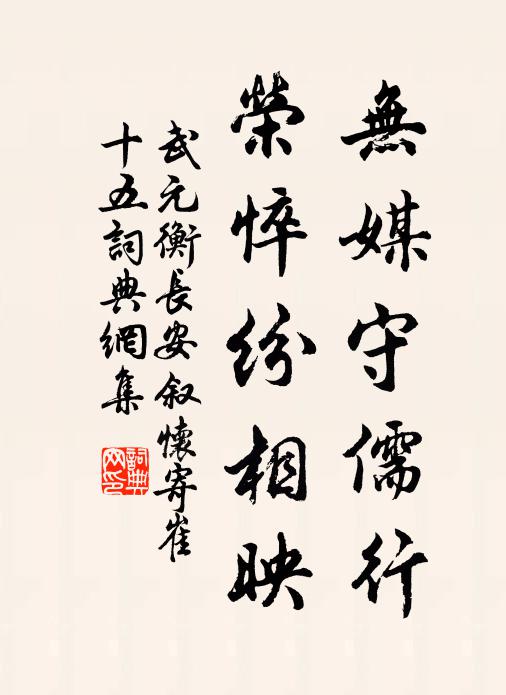 無媒守儒行
榮悴紛相映
武元衡長安叙懷寄崔
十五詞典網集
詞典网印